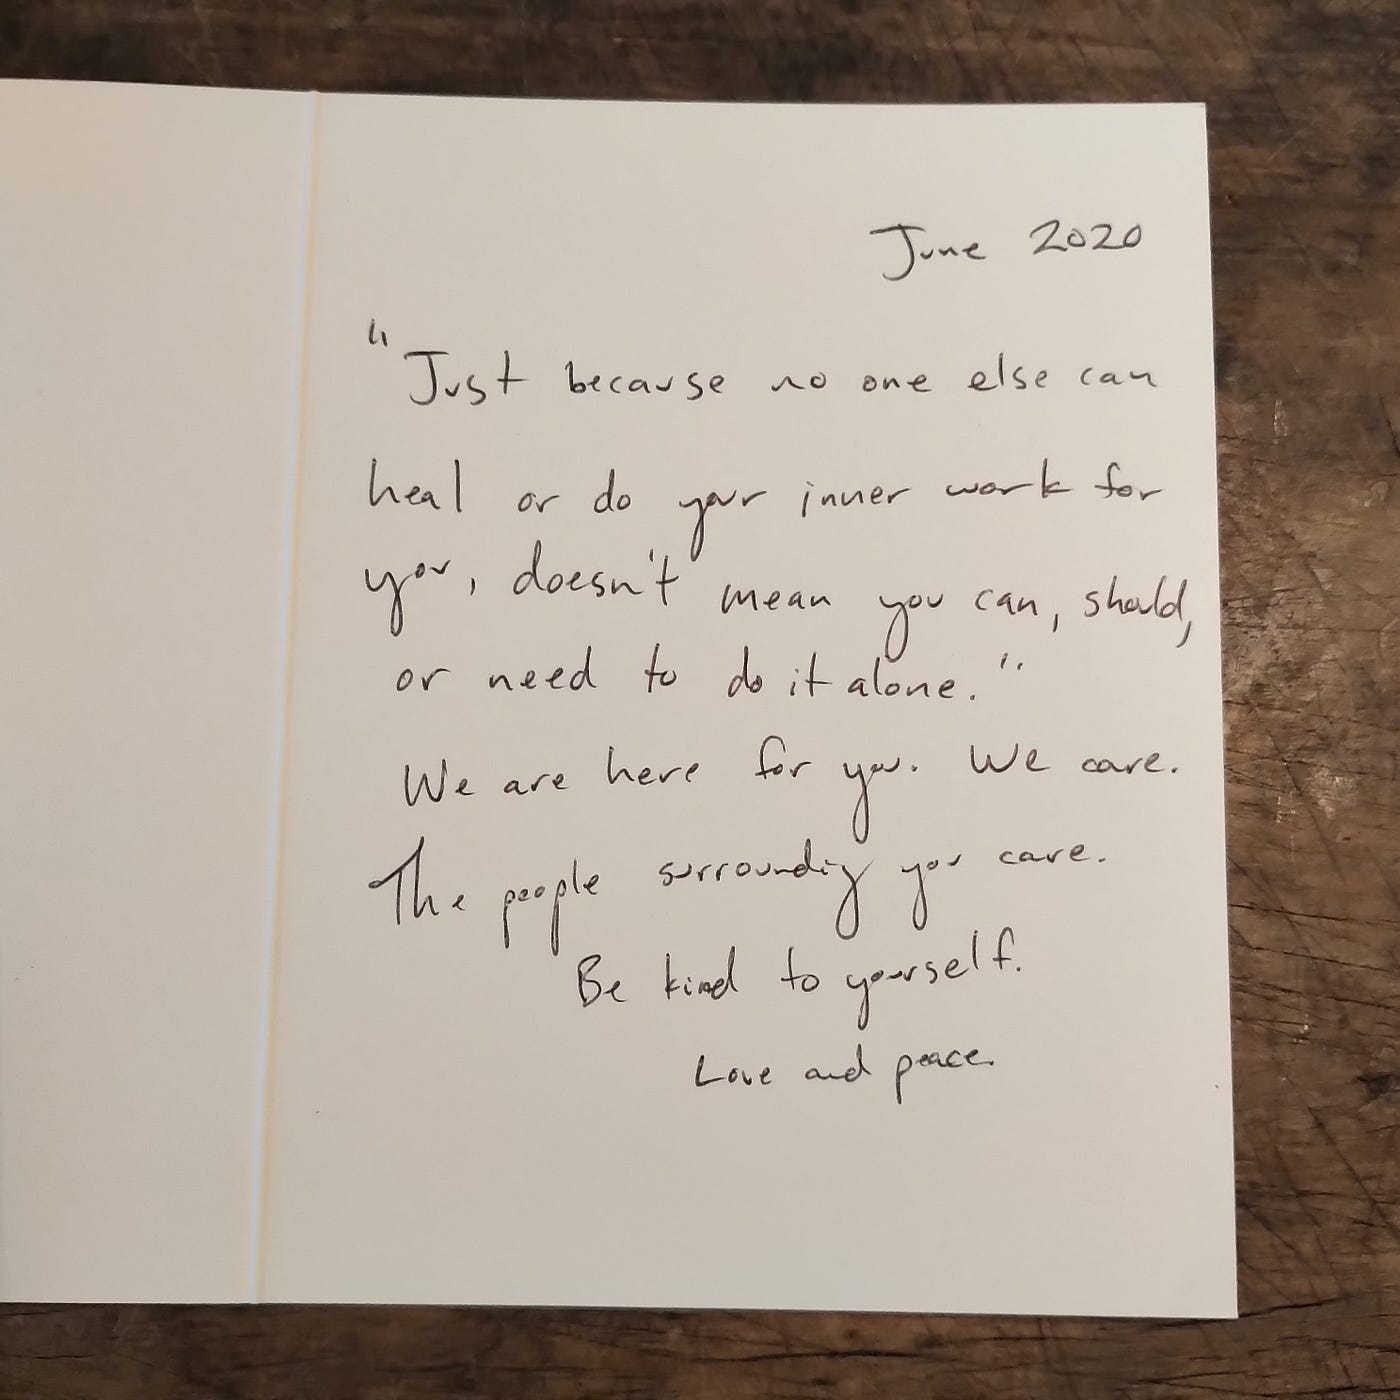 June 2020
"Just because no one else can
heal or do your inner work for
you, doesn't mean you can, should,
or need to do it alone."
We are here for you. We care.
The people surrounding you care.
Be kind to yourself.
Love and peace.